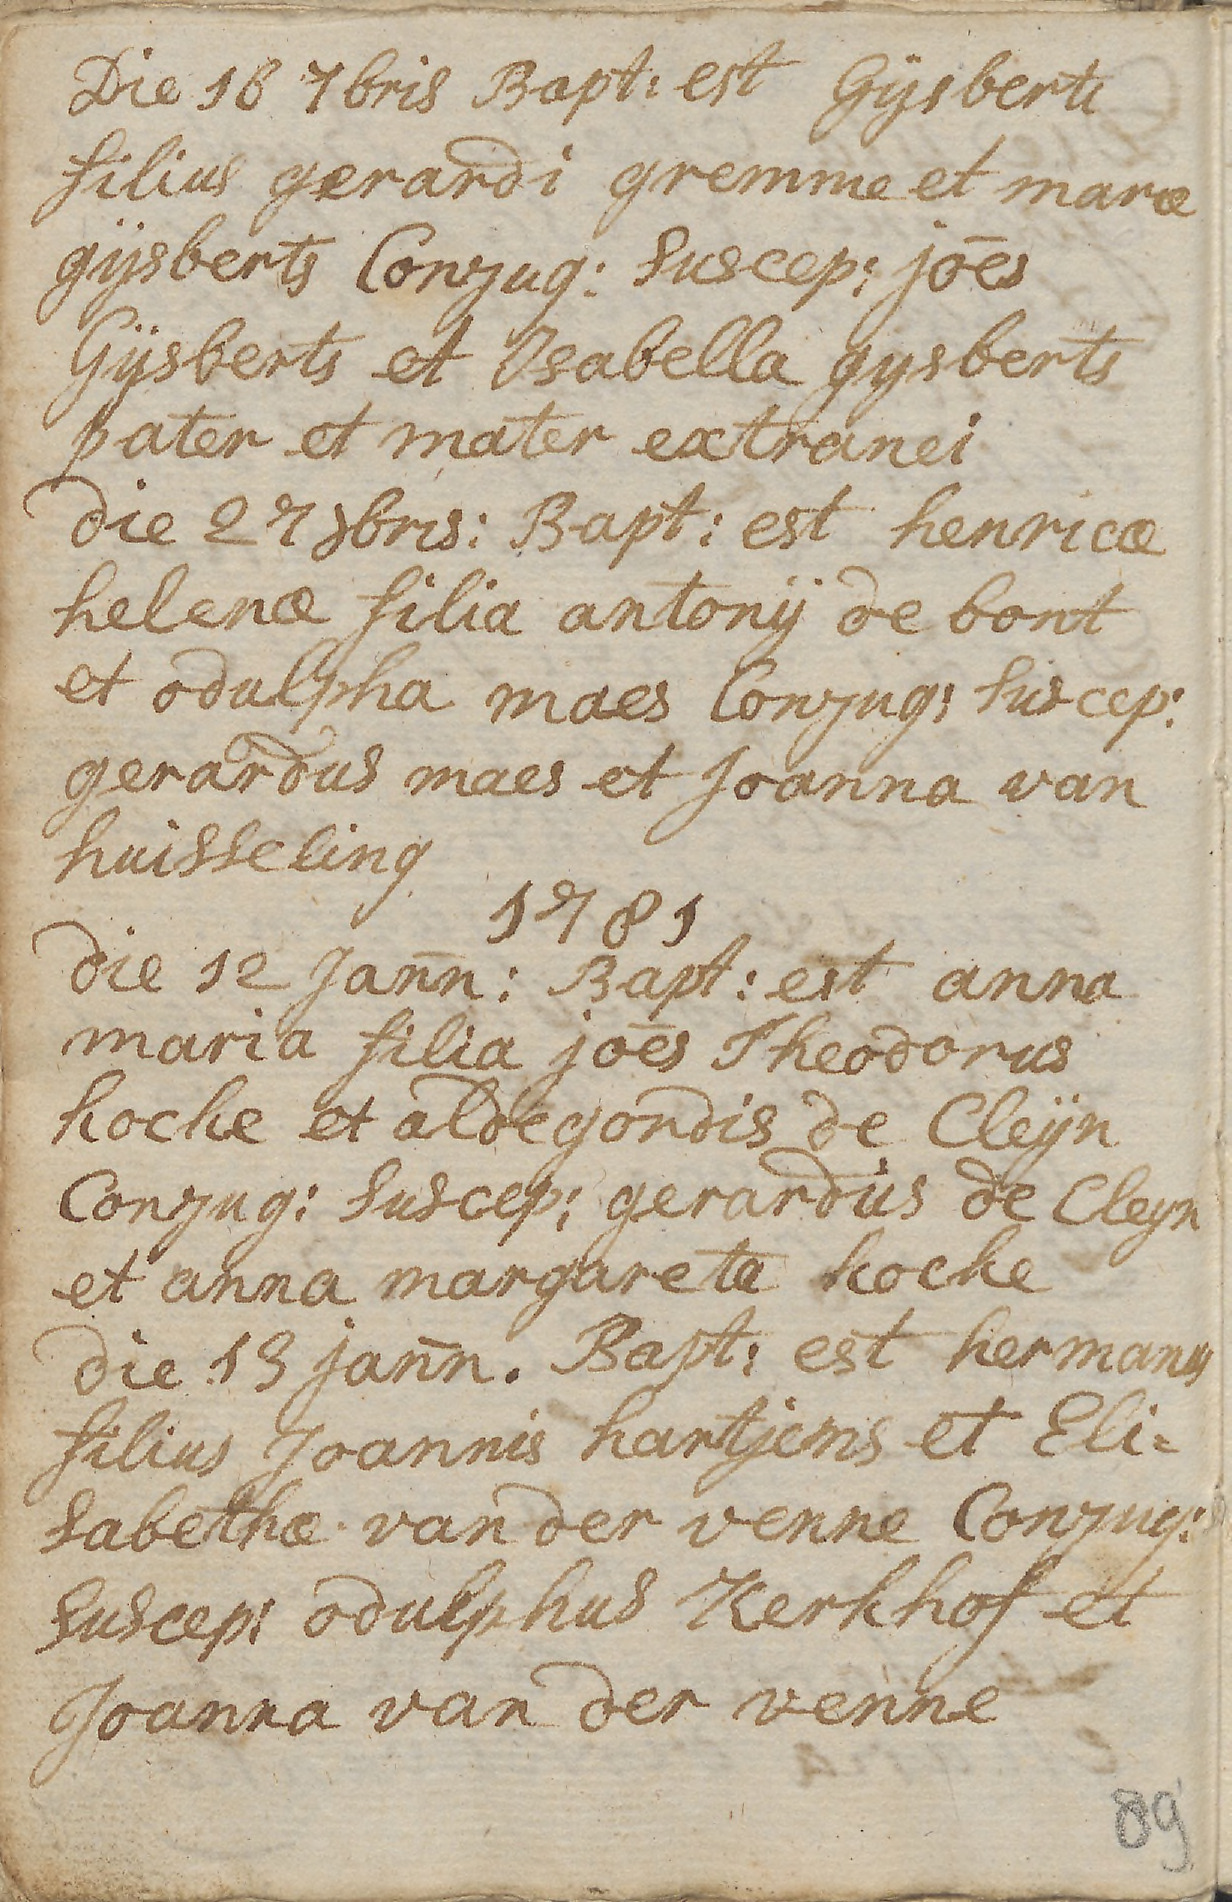 Die 16 7bris Bapt: est Gijsberti
filius gerardi gremme et mariæ
gijsberts Conjug: Suscep: joēs
Gijsberts et Isabella gysberts
pater et mater extranei
die 27 xbris: Bapt: est henricæ
helenæ filia antonij de bont
et odulpha maes Conjug: Suscep:
gerardus maes et Joanna van
huisseling
1781
die 12 Jan̄n: Bapt: est anna
maria filia joēs Theodorus
kocke et aldegondis de Cleijn
Conjug: Suscep: gerardus de Cleyn
et anna margareta kocke
die 13 jan̄n. Bapt: est hermanus
filius Joannis hartjens et Eli=
sabethæ van der venne Conjug:
Suscep: odulphus Kerkhof et
Joanna van der venne
89